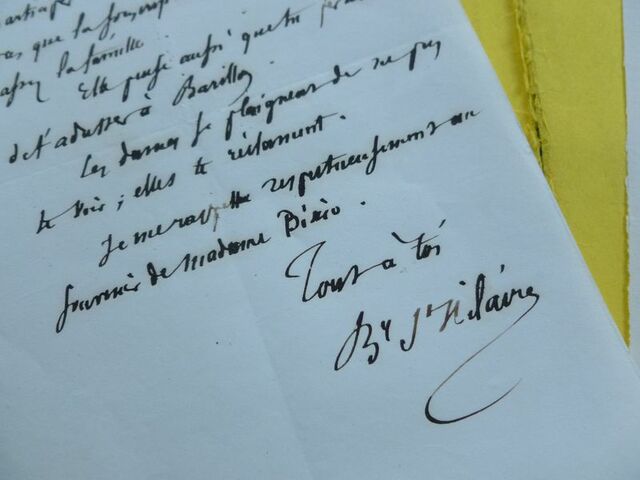 que la souscrip
assez la famille
Elle pense aussi que tu
de t'adresser à Barillon.
Ces dames se plaignent de ne pas
te voir ; elles te réclament.
Je me rappelle respectueusement au
souvenir de Madame Bixio.
Tout à toi
By St Hilaire